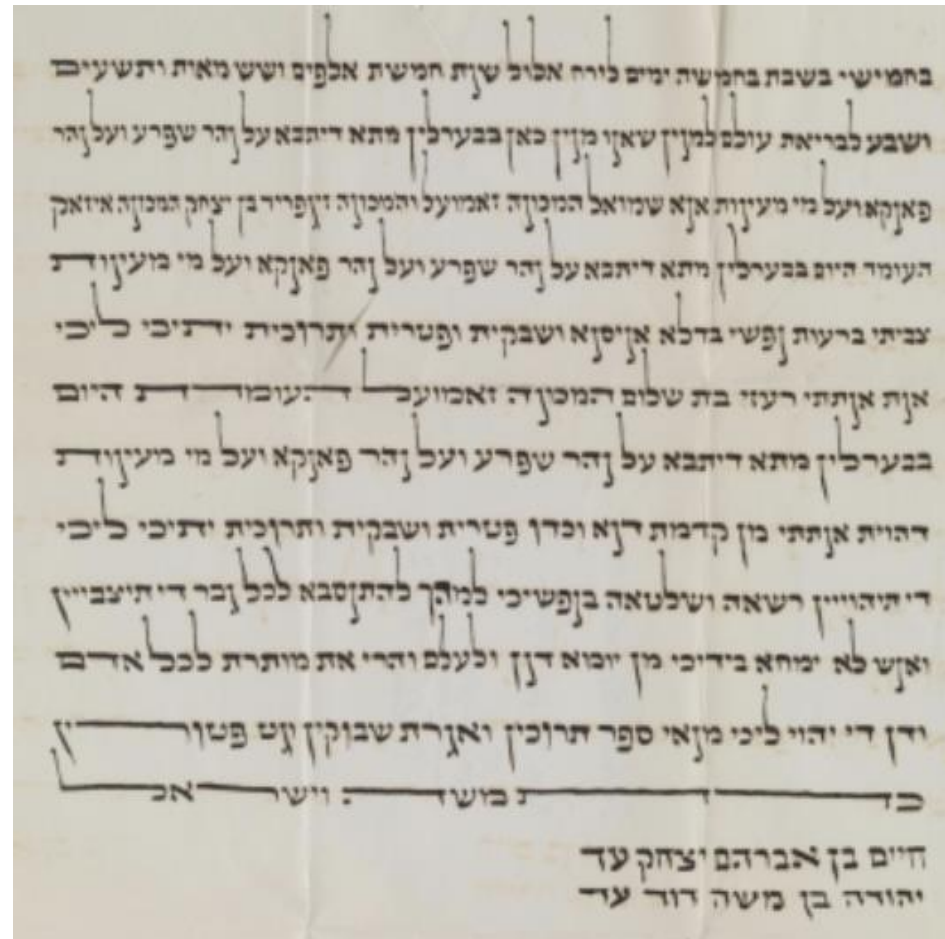 בחמישי בשבת בחמשה ימים לירח אלול שנת חמשת אלפים ושש מאות ותשעים
ושבע לבריאת עולם למנין שאנו מנין כאן בבערלין מתא דיתבא על נהר שפרע ועל נהר
פאנקא ועל מי מעינות אנא שמואל המכונה זאמועל והמכונה זיגפריד בן יצחק המכונה איזאק
העומד היום בבערלין מתא דיתבא על נהר שפרע ועל נהר פאנקא ועל מי מעינות
צביתי ברעות נפשי בדלא אניסנא ושבקית ופטרית ותרוכית יתיכי ליכי
אנת אנתתי רעזי בת שלום המכונה זאמועל העומדת היום
בבערלין מתא דיתבא על נהר שפרע ועל נהר פאנקא ועל מי מעינות
דהוית אנתתי מן קדמת דנא וכדו פטרית ושבקית ותרוכית יתיכי ליכי
די תיהוייין רשאה ושלטאה בנפשיכי למהך להתנסבא לכל גבר די תיצבייין
ואנש לא ימחא בידיכי מן יומא דנן ולעלם והרי את מותרת לכל אדם
ודן די יהוי ליכי מנאי ספר תרוכין ואגרת שבוקין וגט פטורין
כדת משה וישראל
חיים בן אברהם יצחק עד
יהודה בן משה דוד עד